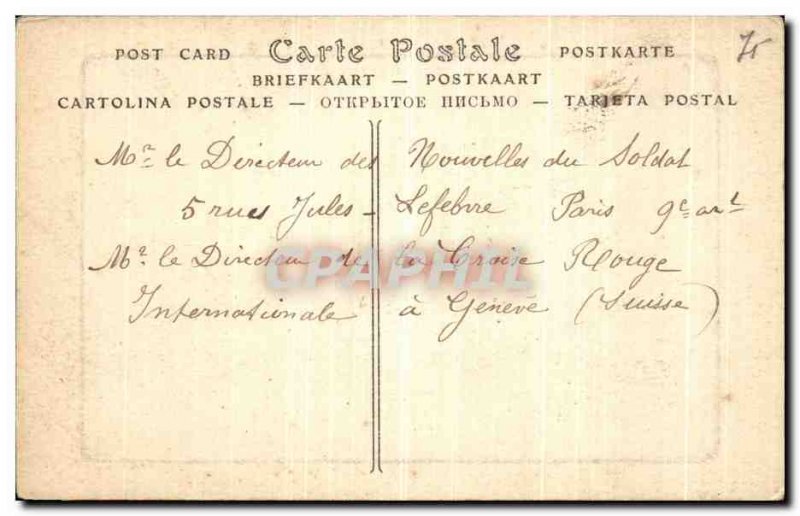 POST CARD Carte Postale POSTKARTE
BRIEFKAART — POSTKAART
CARTOLINA POSTALE — ОТКРЫТОЕ ПИСЬМО — TARJETA POSTAL
75
Mr le Directeur des Nouvelles du Soldat
5 rues Jules - Lefebvre Paris 9e art
Mr le Directeur de la Croise Rouge
Internationale à Genève (Suisse)
CPAPHIL